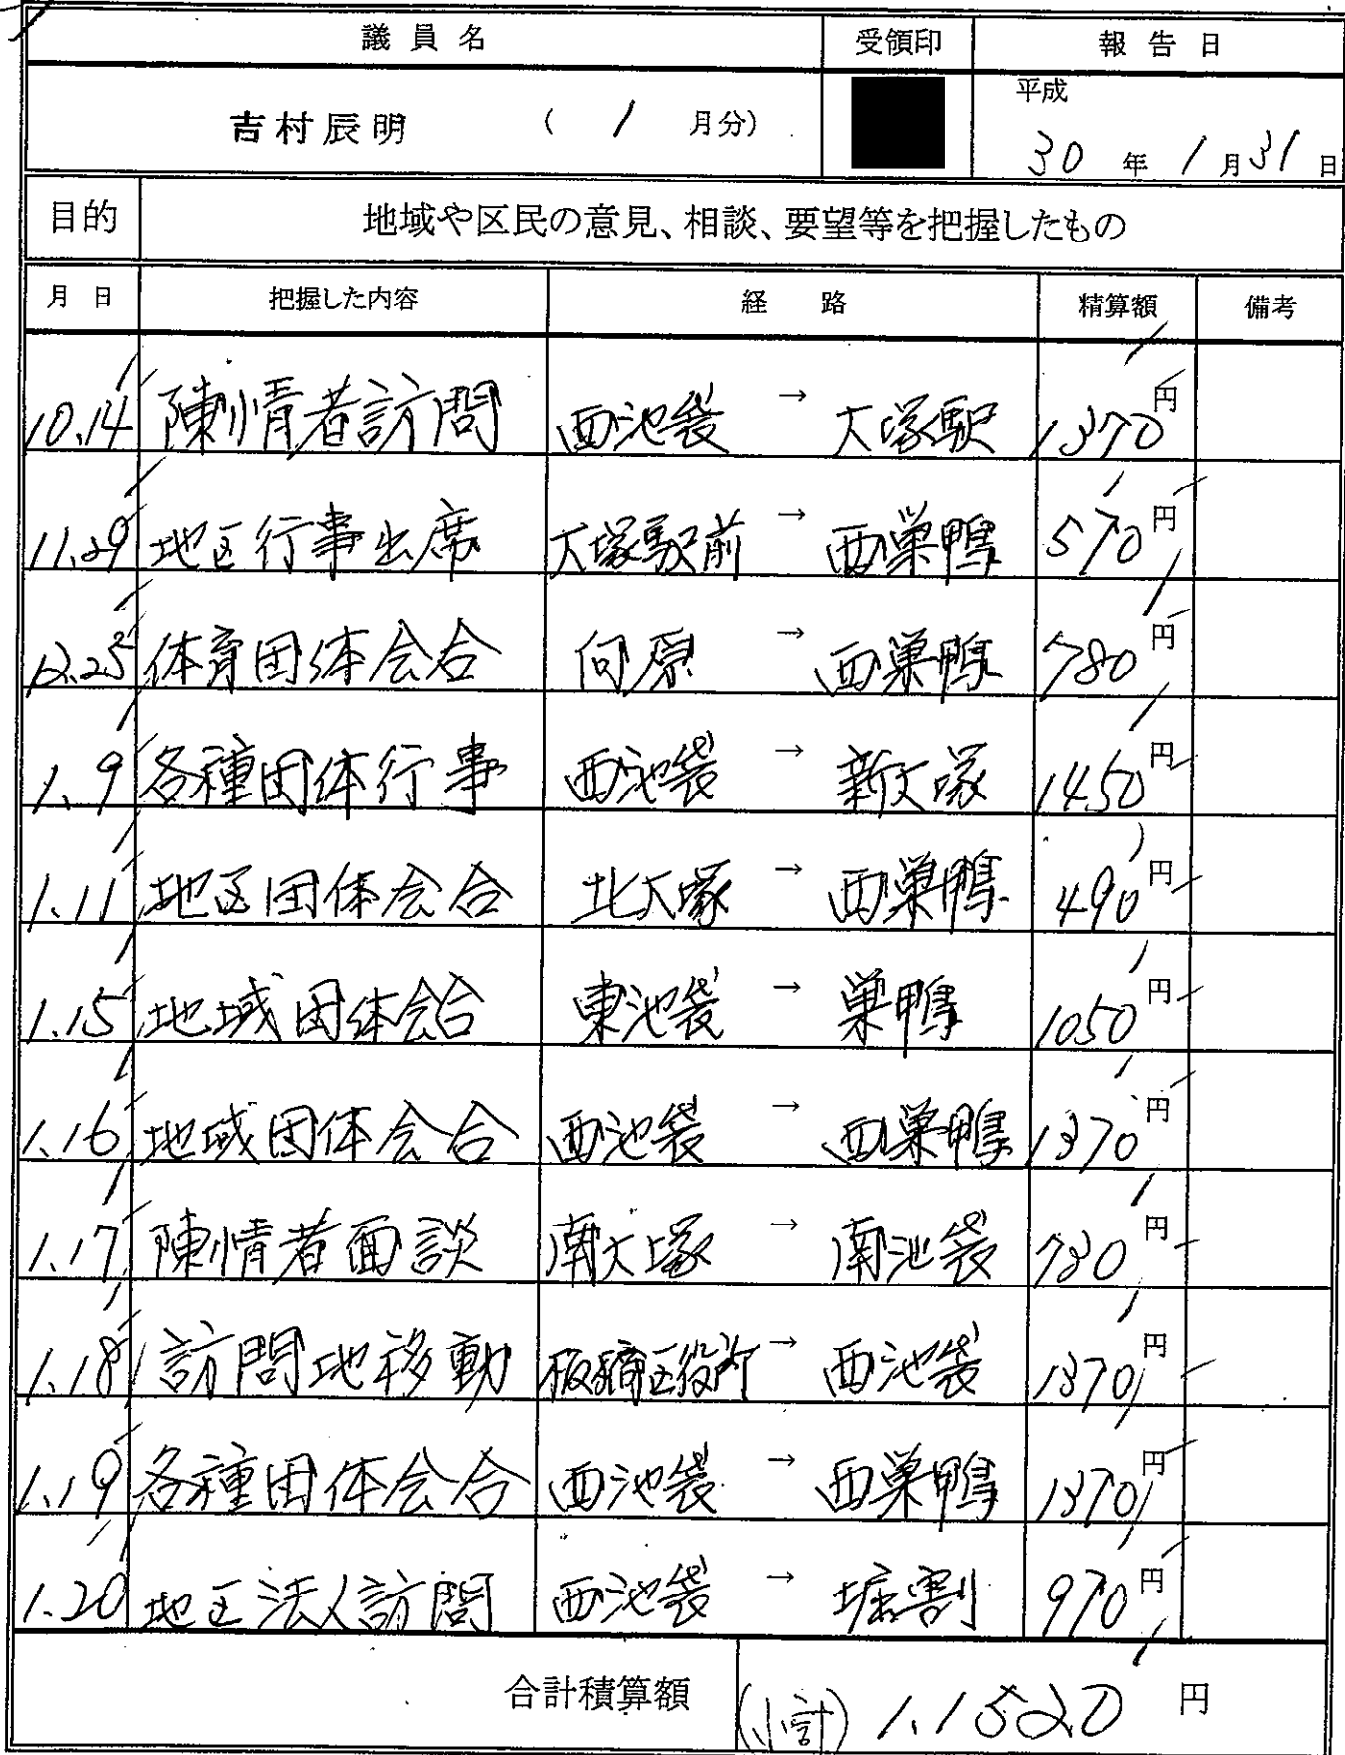 議員名 受領印 報告日
吉村辰明 ( 1 月分) 平成 30 年 1 月 31 日
目的 地域や区民の意見、相談、要望等を把握したもの
月日 把握した内容 経路 精算額 備考
10.14 陳情者訪問 西池袋 → 大塚駅 1370円
11.29 地区行事出席 大塚駅前 → 西巣鴨 570円
12.25 体育団体会合 向原 → 西巣鴨 780円
1.9 各種団体行事 西池袋 → 新大塚 1450円
1.11 地区団体会合 北大塚 → 西巣鴨 490円
1.15 地域団体会合 東池袋 → 巣鴨 1050円
1.16 地域団体会合 西池袋 → 西巣鴨 1370円
1.17 陳情者面談 南大塚 → 南池袋 730円
1.18 訪問地移動 板橋区役所 → 西池袋 1370円
1.19 各種団体会合 西池袋 → 西巣鴨 1370円
1.20 地区法人訪問 西池袋 → 堀割 970円
合計積算額 (小計) 1.1520 円